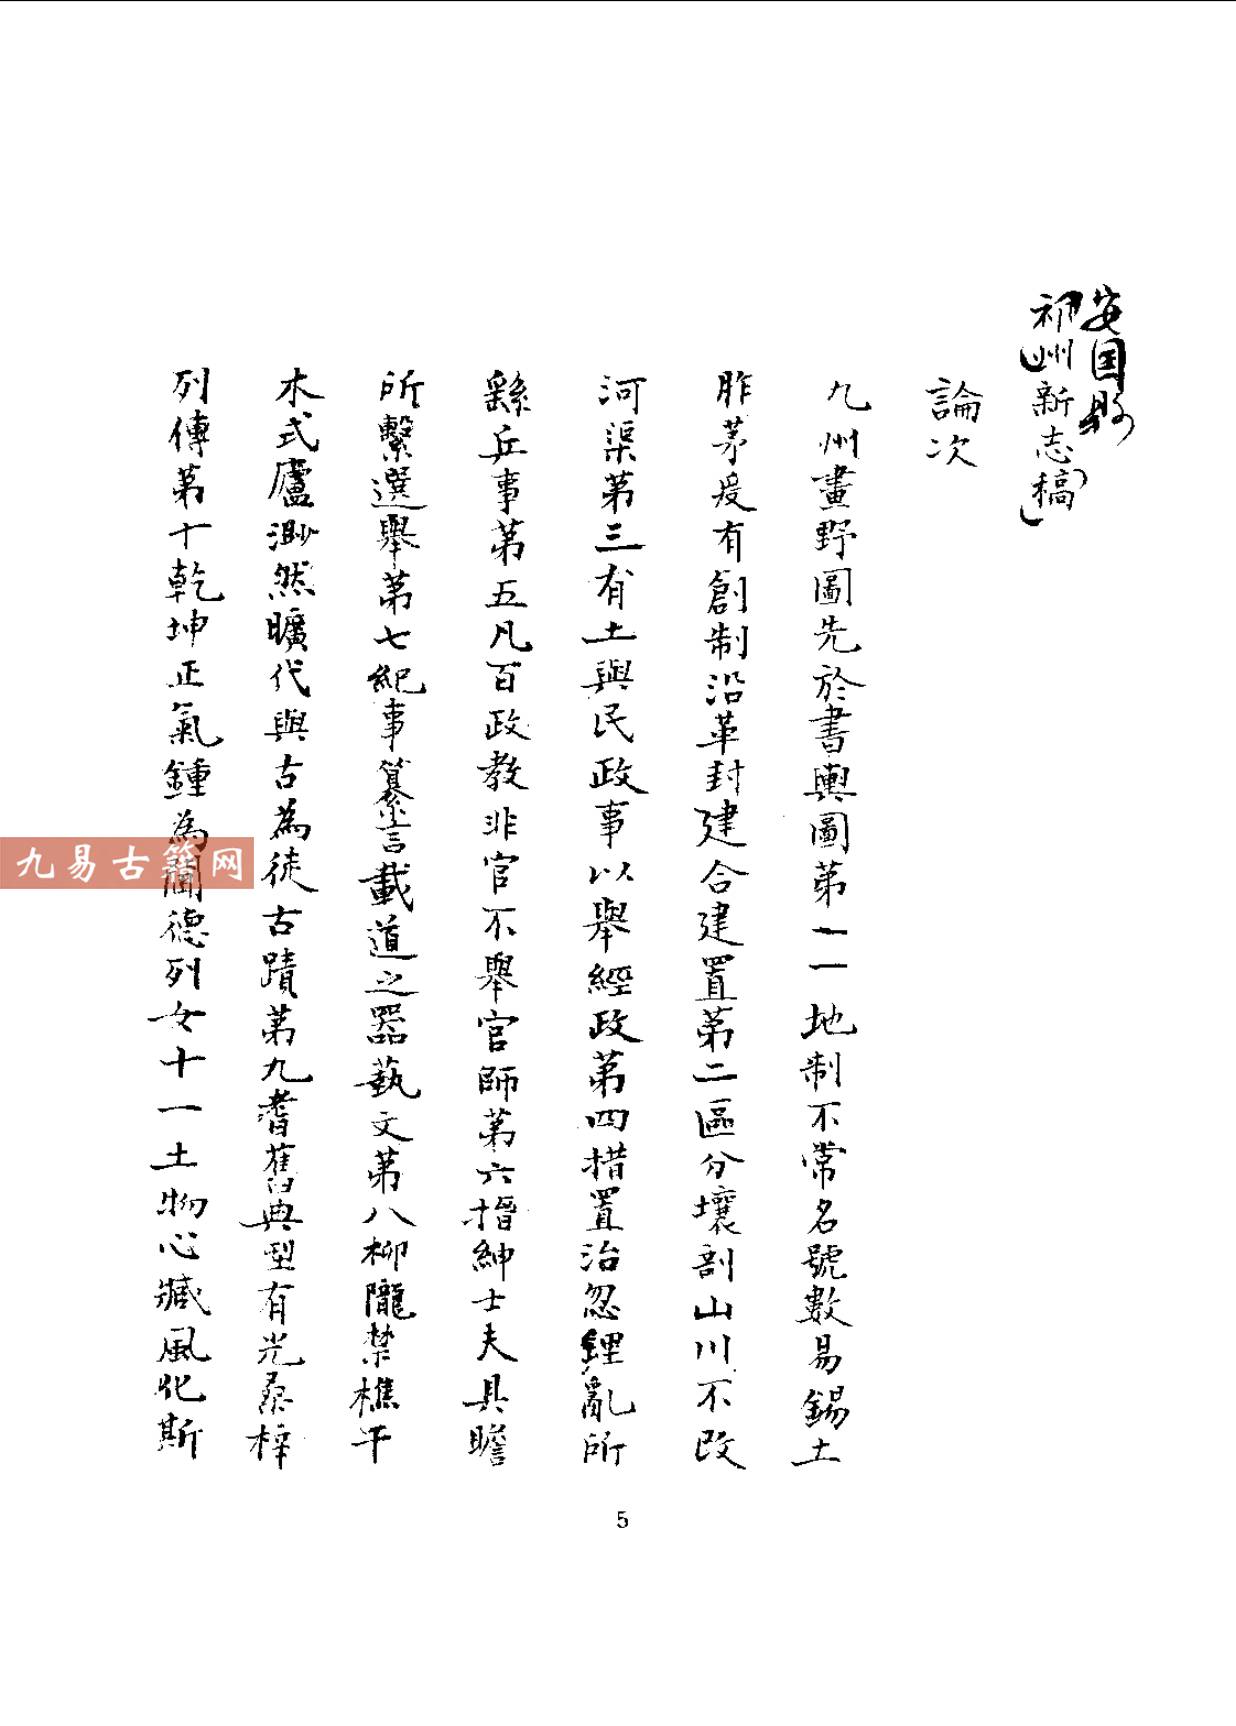 安国縣
祁州新志稿
論次
九州畫野圖先於書輿圖第一一地制不常名號數易錫土
胙茅爰有創制沿革封建合建置第二區分壤割山川不改
河渠第三有土與民政事以舉經政第四措置治忽鋰亂所
繇兵事第五凡百政教非官不舉官師第六搢紳士夫具瞻
所繫選舉第七紀事纂言載道之器藝文第八柳隴禁樵干
木式廬渺然曠代與古為徒古蹟第九耆舊典型有光桑梓
列傳第十乾坤正氣鍾為閫德列女十一土物心臧風化斯
5
九易古籍网